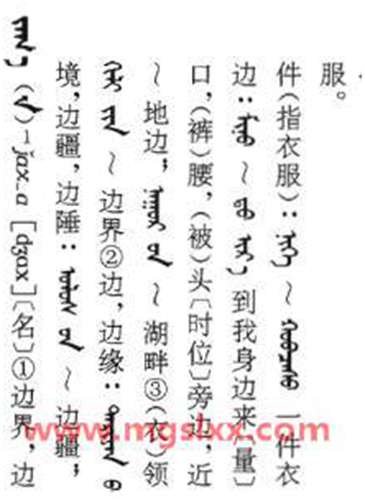 ᠵᠠᠬ᠎ᠠ -ǰax_a [dʒax]〔名〕①边界,边
境,边疆,边陲: ᠤᠯᠤᠰ ᠤᠨ ~ 边疆;
~ 边界②边,边缘:
~ 地边; ᠨᠠᠭᠤᠷ ᠤᠨ ~ 湖畔③(衣)领
口,(裤)腰,(被)头〔时位〕旁边,近
边: ~ 到我身边来〔量〕
件(指衣服): ᠨᠢᠭᠡ ~ 一件衣
服。
www.mgslxx.com